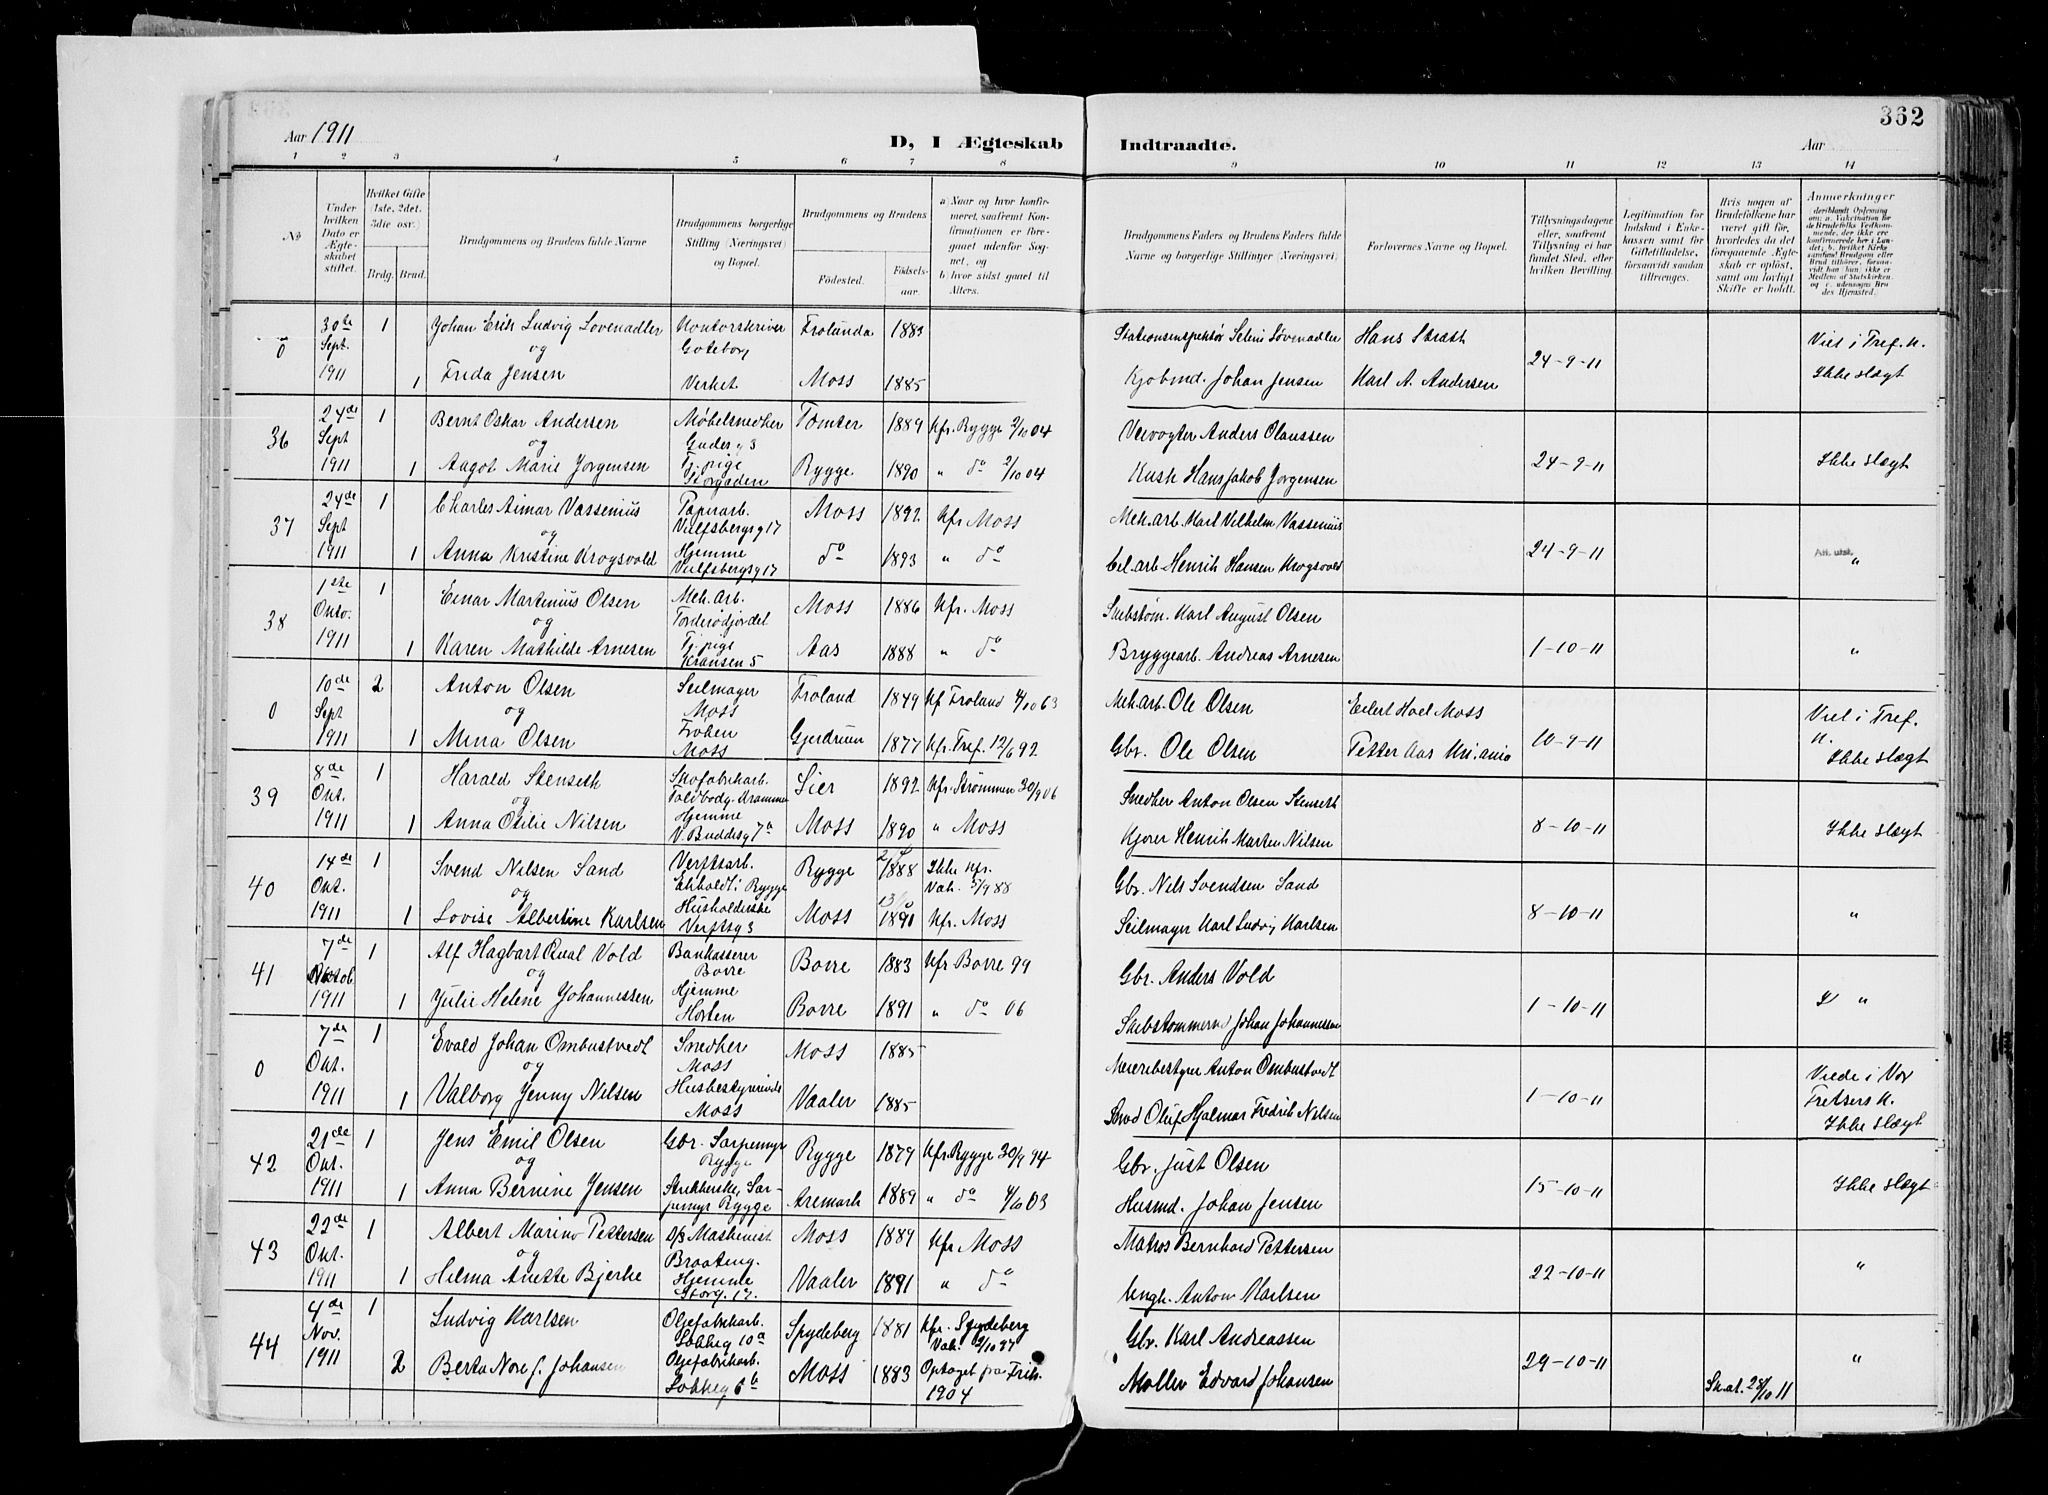 362
Aar 1911
D, I Ægteskab Indtraadte.
Aar
1 2 3 4 5 6 7 8 9 10 11 12 13 14
№
Under hvilken Dato er Ægteskabet stiftet.
Hvilket Gifte (1ste, 2det, 3die osv.)
Brdg. Brud.
Brudgommens og Brudens fulde Navne
Brudgommens borgerlige Stilling (Næringsvei) og Bopæl.
Brudgommens og Brudens
Fødested.
Fødselsaar.
a) Naar og hvor konfirmeret, saafremt Konfirmationen er foregaaet udenfor Sognet, og
b) hvor sidst gaaet til Alters.
Brudgommens Faders og Brudens Faders fulde Navne og borgerlige Stillinger (Næringsvei).
Forlovernes Navne og Bopæl.
Tillysningsdagene eller, saafremt Tillysning ei har fundet Sted, efter hvilken Bevilling.
Legitimation for Indskud i Enkekassen samt for Giftetilladelse, forsaavidt saadan tiltrænges.
Hvis nogen af Brudefolkene har været gift før, hvorledes da det foregaaende Ægteskab er opløst, samt om lovligt Skifte er holdt.
Anmærkninger
0 30te Sept. 1911 1 Johan Erik Ludvig Lovenadler Kontorskriver Goteborg Frolunda 1883 Stationsinspektör Løvenadler Hans Strøth 24-9-11 Viet i Tref. K.
og
1 Frida Jensen Verket Moss 1885 Kjøbmd. Johan Jensen Karl A. Andersen Ikke slægt
36 24de Sept 1911 1 Bernt Oskar Andersen Møbelsnedker Tomter 1889 Kfr. Rygge 2/10 04 Anders Olaussen 24-9-11 Ikke slægt
og
1 Aagot Marie Jorgensen Tj. pige Storgaden Rygge 1890 " do 2/10 04 Kusk Hans Jakob Jorgensen
37 24de Sept 1911 1 Charles Aimar Vassenius Papirarb. Vulfsbergsg 17 Moss 1892 Kfr Moss Mek. arb. Karl Vilhelm Vassenius 24-9-11 Att. utst. "
og
1 Anna Kristine Krogsvold Hjemme Vulfsbergsg 17 do 1893 " do Henrik Hansen Krogsvold
38 1ste Okto. 1911 1 Einar Martinius Olsen Mek. Arb. Moss 1886 Kfr. Moss Karl August Olsen 1-10-11 "
og
1 Karen Mathilde Arnesen Tj. pige Kransen 5 Aas 1888 " do Bryggearb. Andreas Arnesen
0 10de Sept 1911 2 Anton Olsen Seilmager Moss Froland 1849 Kf Froland 4/10 63 Mek. Arb. Ole Olsen Eilert Hoel Moss 10-9-11 Viet i Tref. K.
og
1 Mina Olsen Frøken Moss Gjerdrum 1877 Kfr. Tref. 12/6 92 Gbr. Ole Olsen Petter Aas Kri.ania Ikke slægt
39 8de Okt. 1911 1 Harald Stenseth Skofabrikarb. Lier 1892 Kfr. Strømmen 30/9 06 Snedker Anton Olsen Stenseth 8-10-11 Ikke slægt
og
1 Anna Otilie Nilsen Hjemme V. Buddesg 7a Moss 1890 " Moss Kjører Henrik Marten Nilsen
40 14de Okt. 1911 1 Svend Nilsen Sand Verftsarb. Ekholdt i Rygge Rygge 1888 Ikke Kfr. Vak. 5/9 88 Gbr. Nils Svendsen Sand 8-10-11 "
og
1 Lovise Albertine Karlsen Husholderske Verftsg 3 Moss 1890 Kfr. Moss Seilmager Karl Ludvig Karlsen
41 7de 1911 1 Alf Hagbart Qual Vold Bankasserer Borre Borre 1883 Kfr Borre 99 Gbr. Anders Vold 1-10-11 "
og
1 Julie Helene Johannessen Hjemme Horten Borre 1891 " do 06 Johan Johannessen
0 7de Okt. 1911 1 Evald Johan Ombustvedt Snedker Moss Moss 1885 Meieribestyrer Anton Ombustvedt 1-10-11 Viede i Vor Frelsers K.
og
1 Valborg Jenny Nilsen Husbestyrerinde Moss Vaaler 1885 Oluf Hjalmar Fredrik Nilsen Ikke slægt
42 21de Okt. 1911 1 Jens Emil Olsen Gbr. Sarpemyr Rygge Rygge 1879 Kfr. Rygge 30/9 94 Gbr. Just Olsen 15-10-11 Ikke slægt
og
1 Anna Bernine Jensen Sarpemyr Rygge Aremark 1889 " do 4/10 03 Husmd. Johan Jensen
43 22de Okt. 1911 1 Albert Marino Pettersen D/S Maskinist Braateng. Moss 1889 Kfr Moss Matros Bernhard Pettersen 22-10-11 "
og
1 Hilma Anette Bjerke Hjemme Storg. 17. Vaaler 1891 " do Anton Karlsen
44 4de Nov. 1911 1 Ludvig Karlsen Oljefabrikarb. Løkkeg 10a Spydeberg 1881 Kfr. Spydeberg Gbr. Karl Andreassen 29-10-11 "
2 Berta Nore f. Johansen Oljefabrikarb. Løkkeg 6b Moss 1883 Optaget fra Frik. 1904 Møller Edvard Johansen Sk.at. 28/10 11